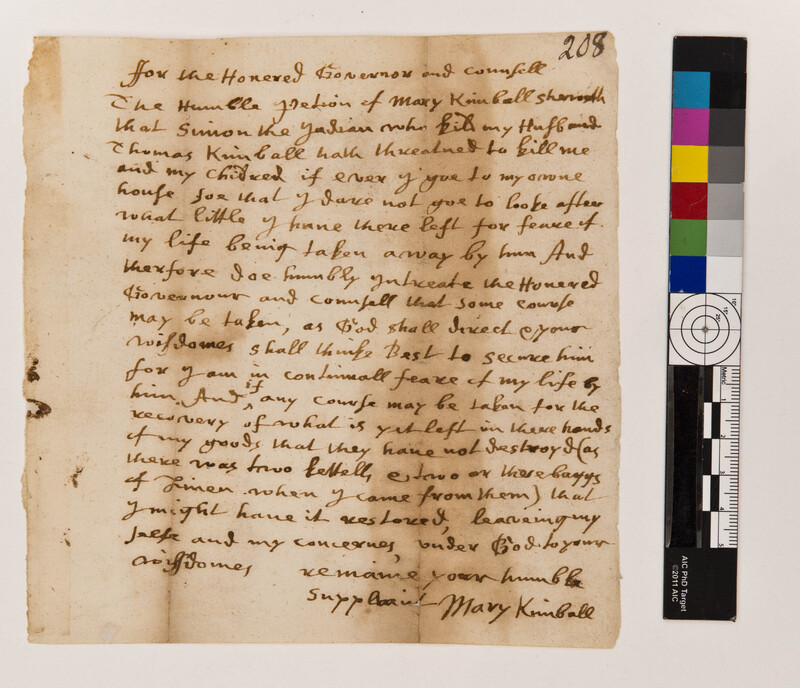 208
ffor the Honered Governor and counsell
The Humble petion of Mary Kimball sheweth
that Simon the Indian who kild my Husband
Thomas Kimball hath threatned to kill me
and my Children if ever I goe to my owne
house soe that I dare not goe to looke after
what little I have there left for feare of
my life being taken away by him And
therfore doe humbly Intreate the Honered
Governour and counsell that some course
may be taken, as God shall direct & your
wisdomes shall thinke Best to secure him
for I am in continuall feare of my life by
him. And if any course may be taken for the
recovery of what is yet left in there hands
of my goods that they have not destroyd (as
there was two kettells & two or there baggs
of Linen when I came from them) that
I might have it restored, leaveing my
selfe and my concernes, under God to your
wissdomes remaine your humble
supplaint Mary Kimball
Metric
AIC PhD Target
©2011 AIC